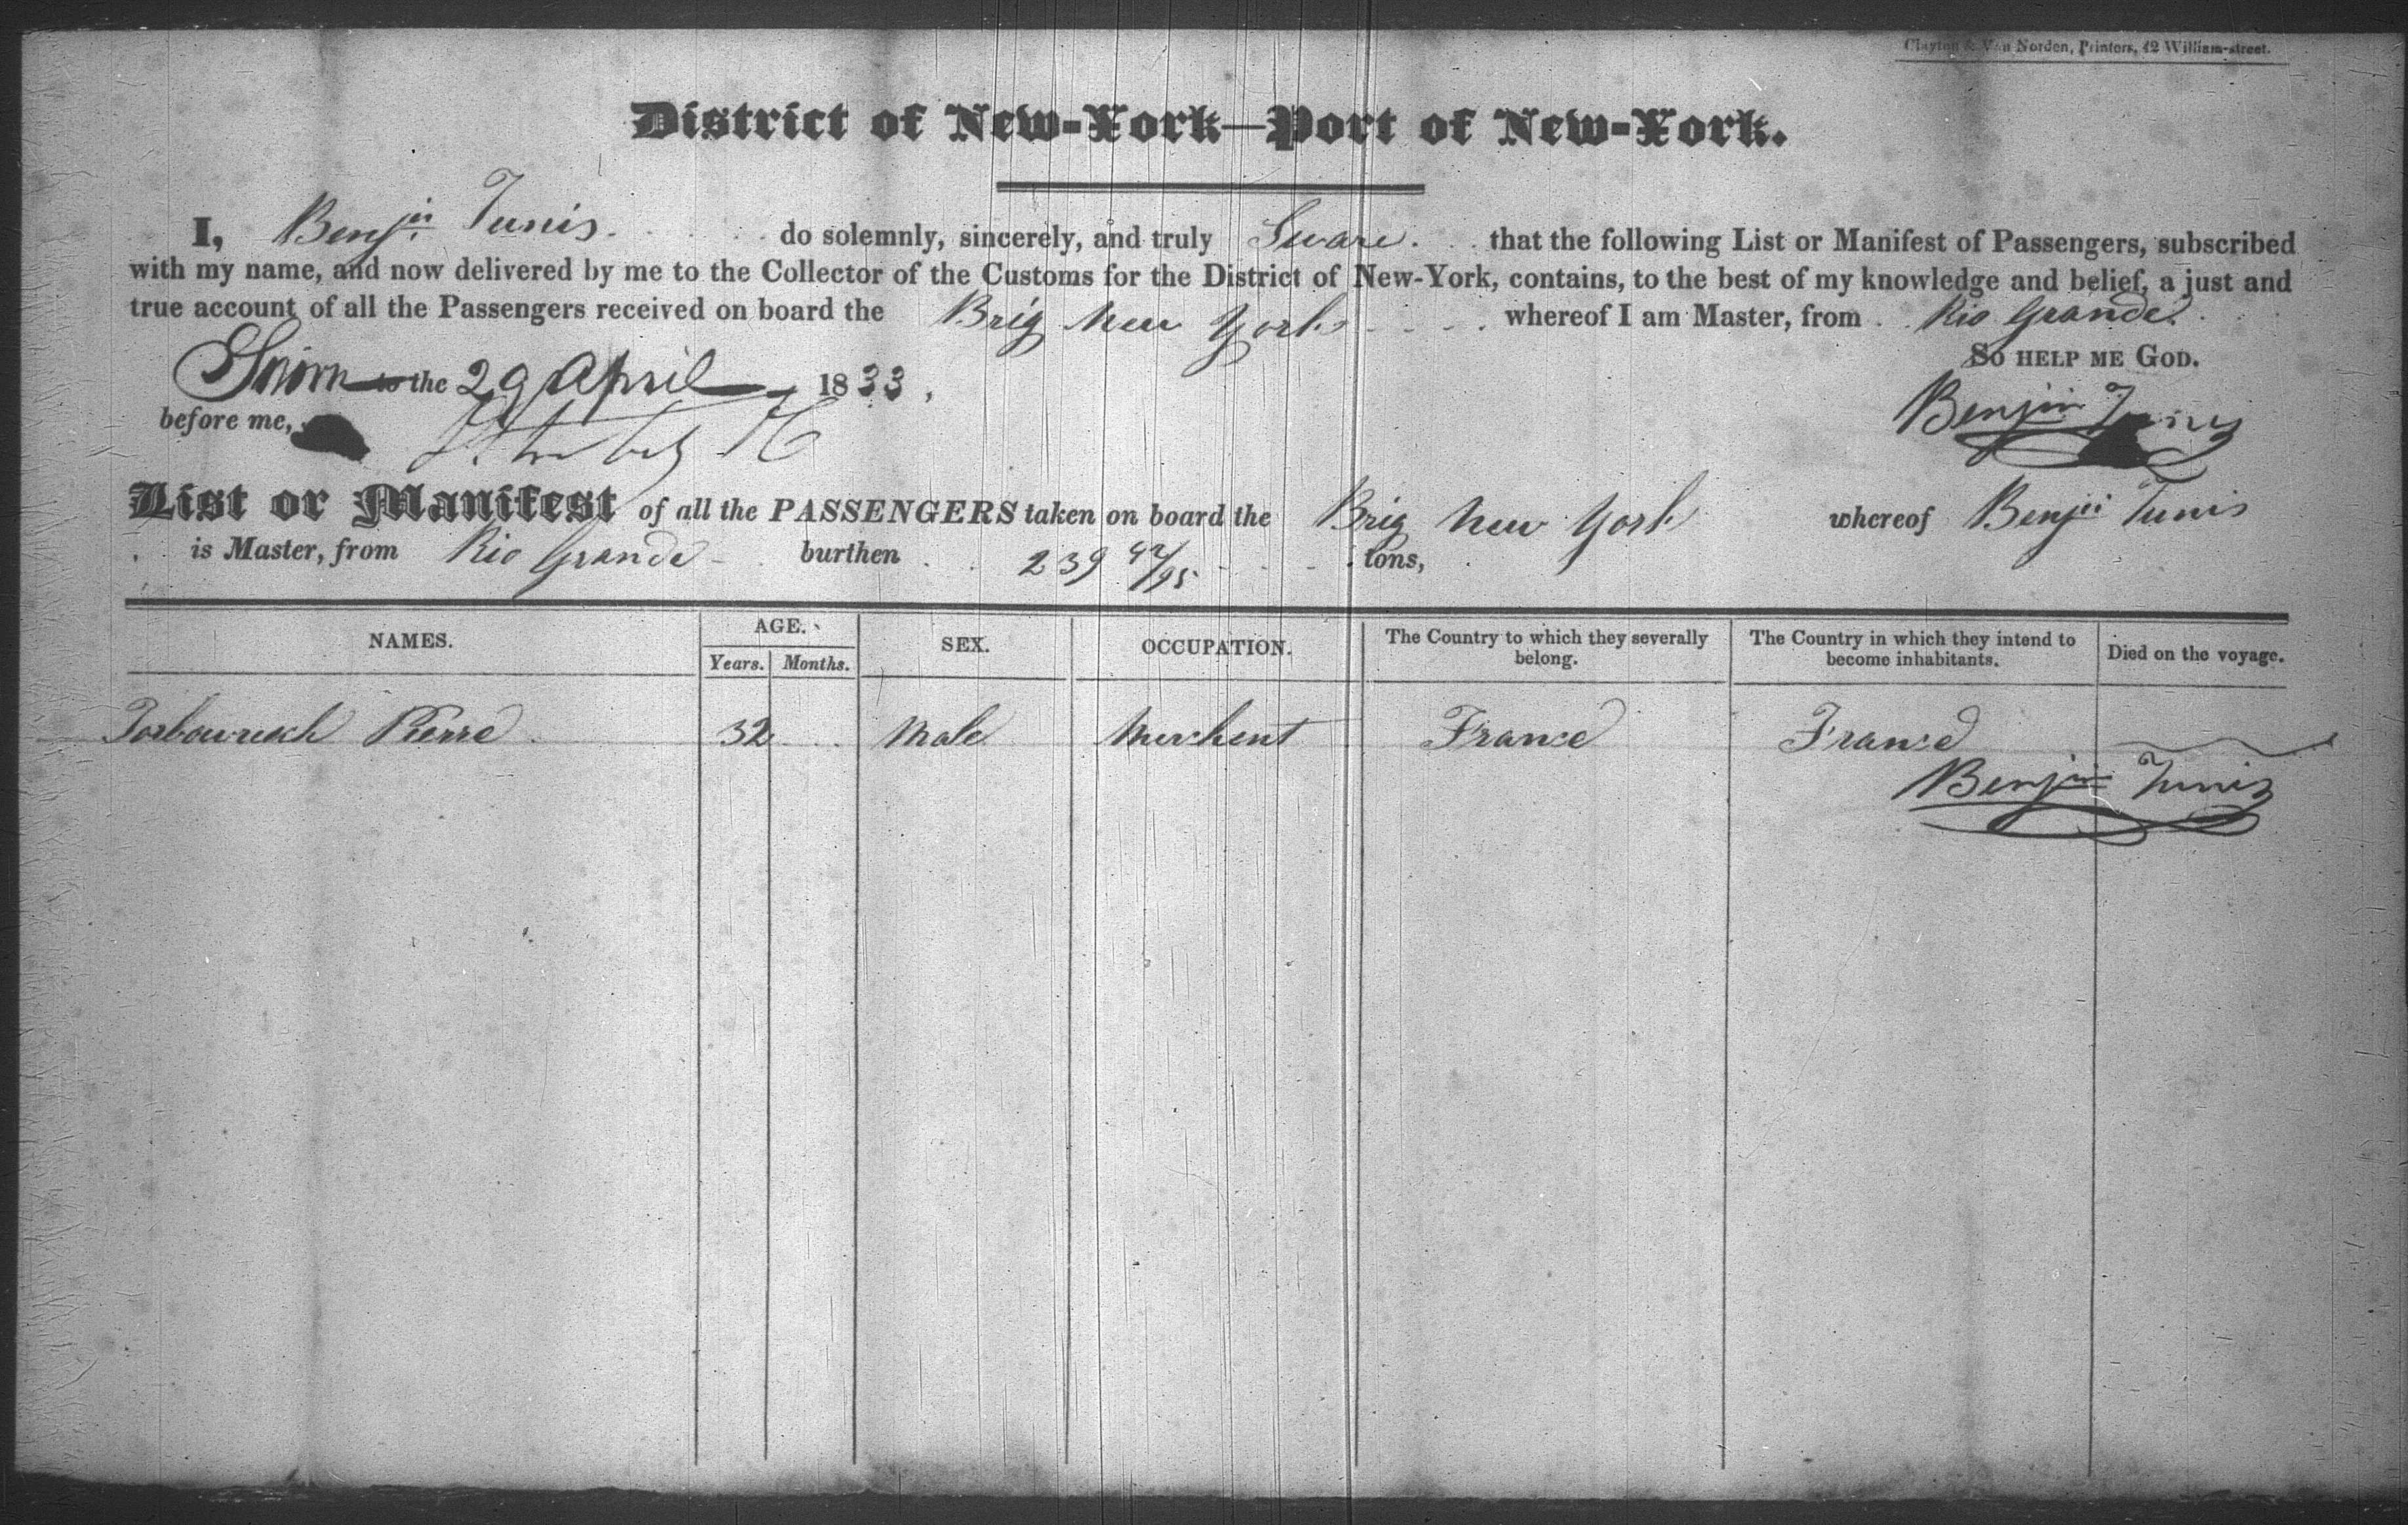 Clayton & Van Norden, Printers, 42 William-street.
District of New-York—Port of New-York.
I, Benjn Tunis. do solemnly, sincerely, and truly Sware. that the following List or Manifest of Passengers, subscribed
with my name, and now delivered by me to the Collector of the Customs for the District of New-York, contains, to the best of my knowledge and belief, a just and
true account of all the Passengers received on board the Brig New York whereof I am Master, from Rio Grande.
So help me God.
Sworn to the 29 April 1833,
Benjn Tunis
before me,
List or Manifest of all the PASSENGERS taken on board the Brig New York whereof Benjn Tunis
is Master, from Rio Grande burthen 239 tons,
NAMES. AGE. SEX. OCCUPATION. The Country to which they severally belong. The Country in which they intend to become inhabitants. Died on the voyage.
Years. Months.
Pierre 32 Male Merchent France France
Benjn Tunis